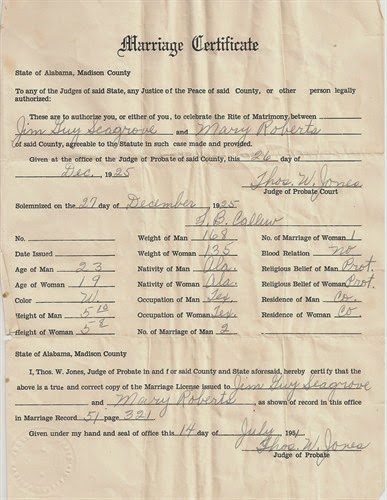 Marriage Certificate
State of Alabama, Madison County
To any of the Judges of said State, any Justice of the Peace of said County, or other person legally
authorized:
These are to authorize you, or either of you, to celebrate the Rite of Matrimony between
Jim Guy Seagrove and Mary Roberts
of said County, agreeable to the Statute in such case made and provided.
Given at the office of the Judge of Probate of said County, this 26 day of
Dec. 1925 Thos. W. Jones
Judge of Probate Court
Solemnized on the 27 day of December 1925
B.
No. Weight of Man 168 No. of Marriage of Woman 1
Date Issued Weight of Woman 135 Blood Relation no
Age of Man 23 Nativity of Man Ala. Religious Belief of Man Prot.
Age of Woman 19 Nativity of Woman Ala. Religious Belief of Woman Prot.
Color W. Occupation of Man Tex. Residence of Man Co.
Height of Man 5 10 Occupation of Woman Tex. Residence of Woman Co
Height of Woman 5 8 No. of Marriage of Man 2
State of Alabama, Madison County
I, Thos. W. Jones, Judge of Probate in and for said County and State aforesaid, hereby certify that the
above is a true and correct copy of the Marriage License issued to Jim Guy Seagrove
and Mary Roberts as shown of record in this office
in Marriage Record 51 page 321
Given under my hand and seal of office this 14 day of July 1951
Thos. W. Jones
Judge of Probate